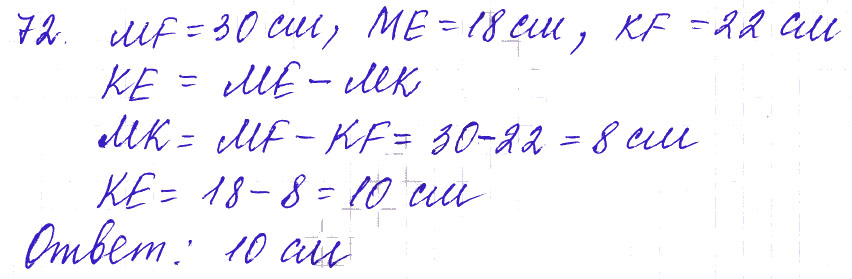 72. MF = 30 см, ME = 18 см, KF = 22 см
KE = ME - MK
MK = MF - KF = 30 - 22 = 8 см
KE = 18 - 8 = 10 см
Ответ: 10 см